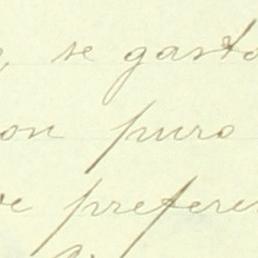 , se gasto
on puro
ve prefere